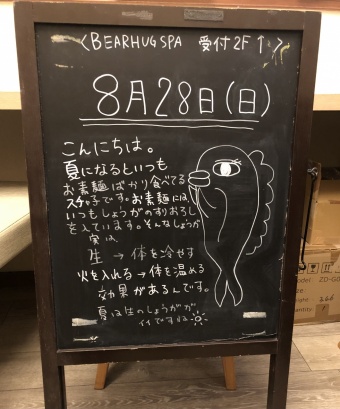 〈BEARHUG SPA 受付2F↑〉
8月28日(日)
こんにちは。
夏になるといつも
お素麺ばかり食べてる
スチャ子です。お素麺には、
いつもしょうがのすりおろし
を入ています。そんなしょうが
実は、
生 → 体を冷やす
火を入れる → 体を温める
効果があるんです。
夏は生のしょうがが
イイですね